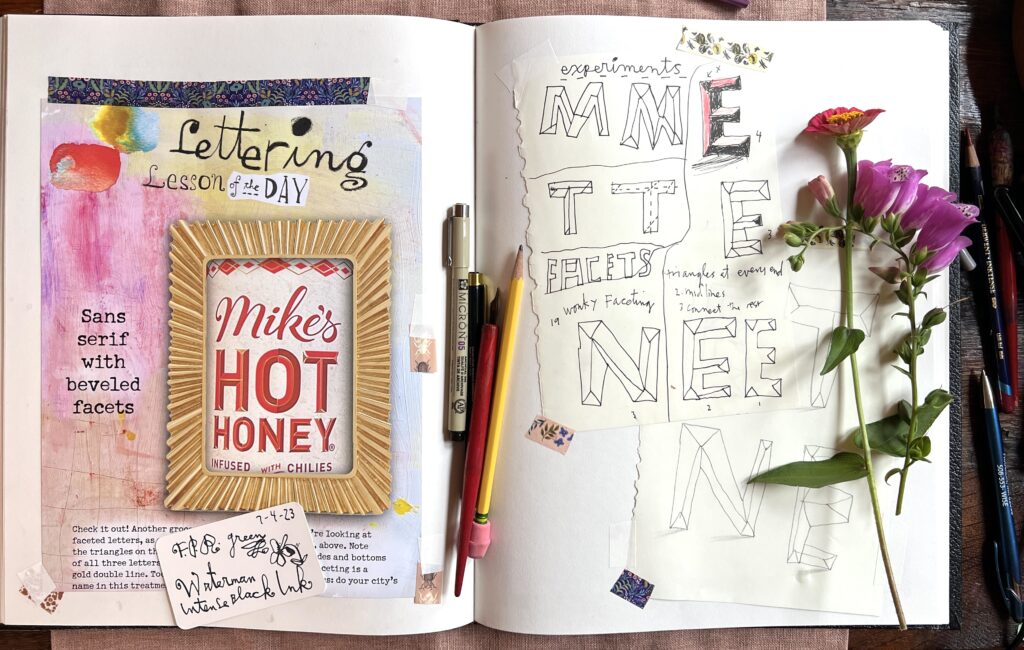 Lettering
Lesson of the DAY
Sans
serif
with
beveled
facets
Mike's
HOT
HONEY®
INFUSED WITH CHILIES
Check it out! Another
faceted letters, as
the triangles on th
of all three letters
gold double line. Too
name in this treatme
're looking at
above. Note
des and bottoms
ceting is a
rs: do your city's
7-4-23
F.P.R. green
Waterman
intense Black Ink
MICRON 05
experiments
M M E
4
T T E
3
FACETS
triangles at every end
2. mid lines
3 connect the rest
19 wonky Faceting
N E E
3 2 1
T
N E